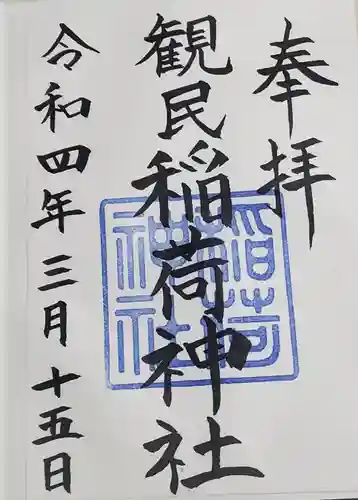 奉拝
観民稲荷神社
稲荷
神社
令和四年三月十五日